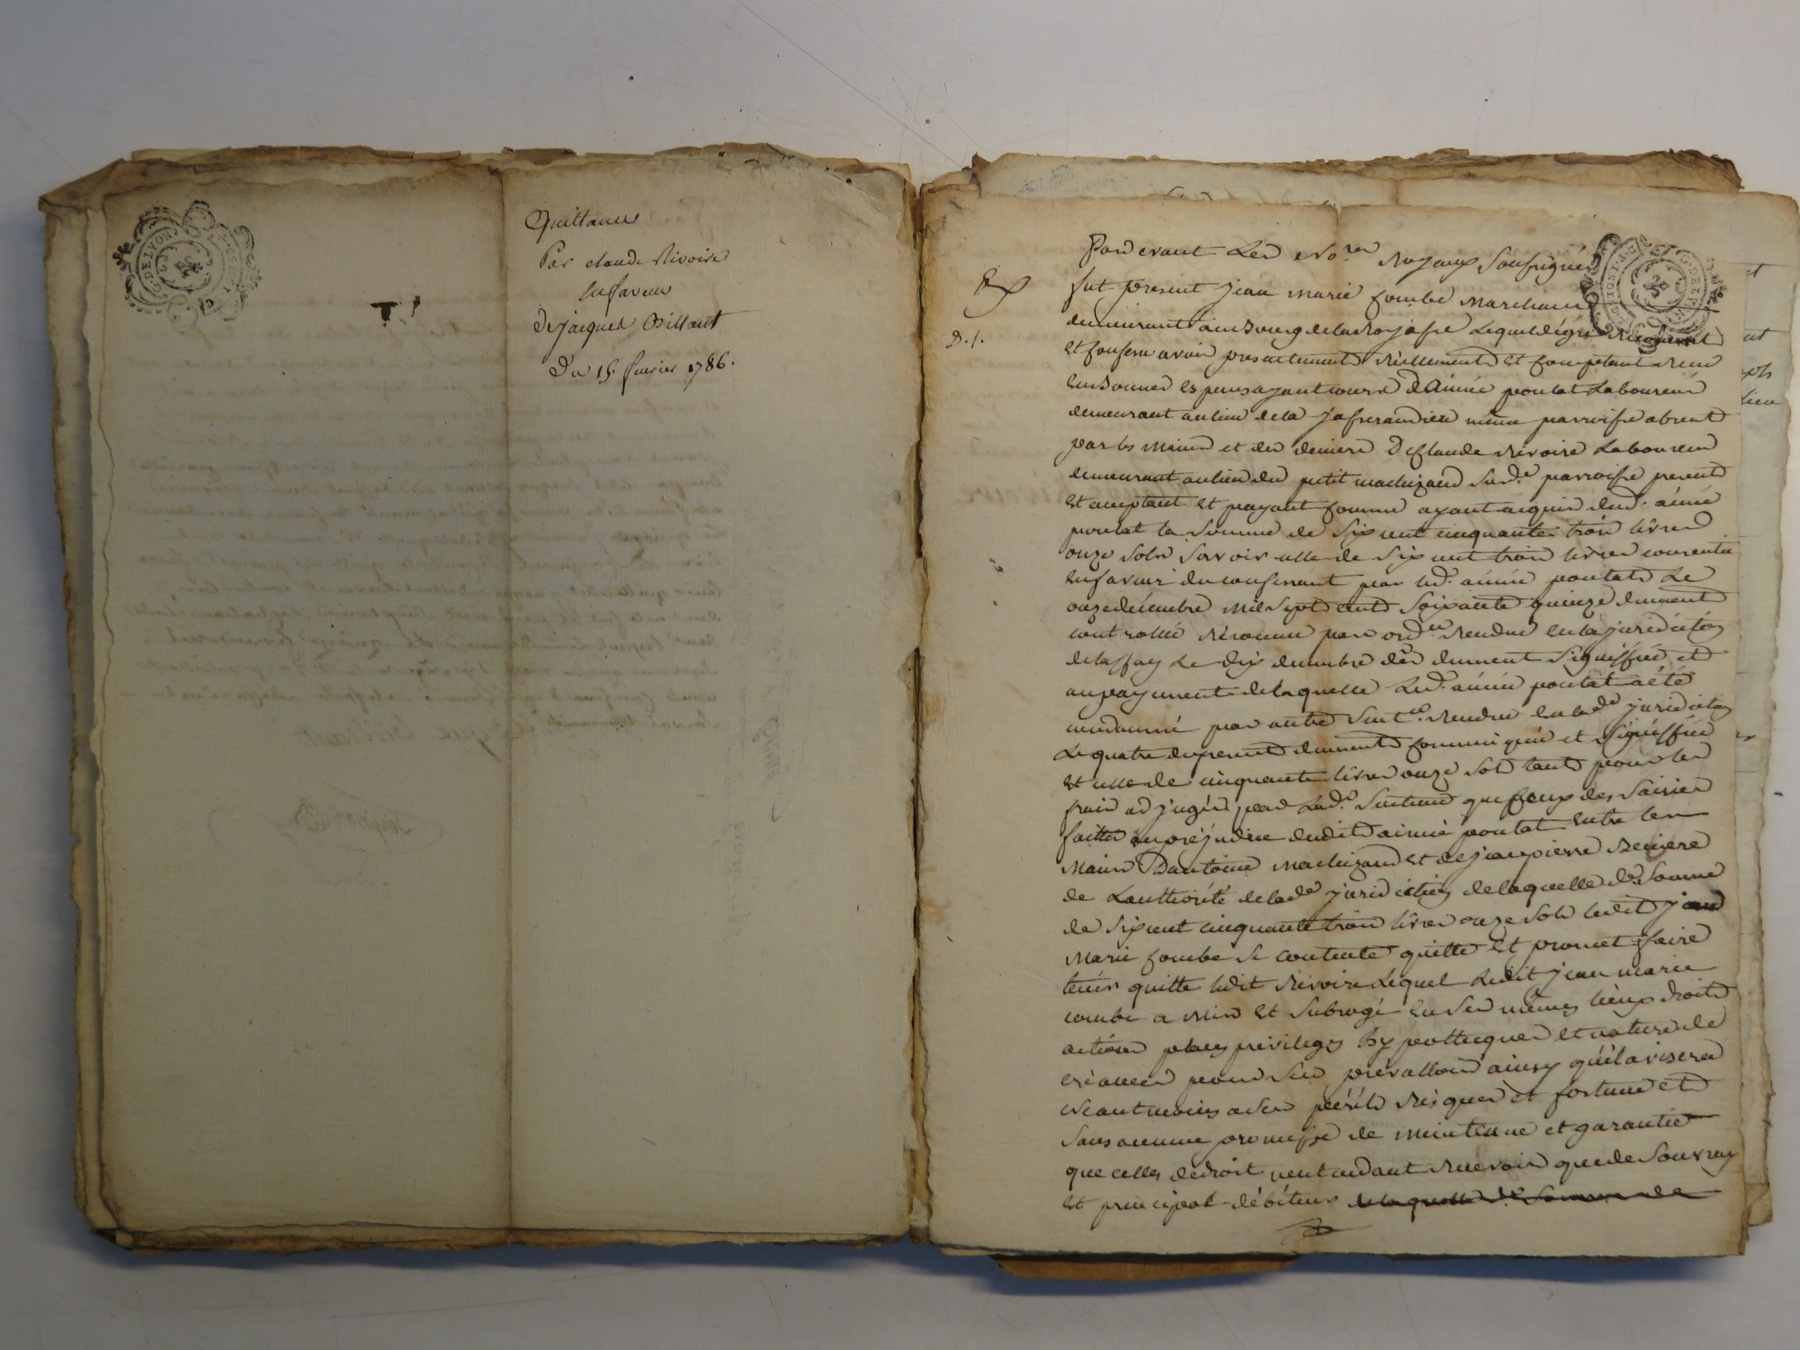 Quittance
Par claude Rivoire
En faveur
de jacques Billant
Du 15. fevrier 1786.
Pardevant Les No.res Royaux Soussignés
fut present jean marie Combe marchand
demeurant au Bourg de
Et Confesse avoir presentement Réellement Et Comptant Receu
En Bonnes Especes ayant cours D'aimé poulat Laboureur
demeurant au lieu de la même parroisse absent
par les mains et des deniers De Claude Rivoire Laboureur
demeurant au lieu du petit machizaud Sus de. parroisse present
Et acceptant Et payant Comme ayant acquis dud. aimé
poulat la Somme de Six cent cinquante trois livres
onze Sols Savoir celle de Six cent trois livres consentie
En faveur du confessant par led. aimé poulat Le
onze décembre mil Sept cent Soixante quinze dument
controllé Reconnue par ord.ce Rendue En la juridiction
de Le dix decembre d.er dument Signiffiée et
au payement de laquelle Led. aimé poulat a été
condamné par autre Sent.ce Rendue En lad.e juridiction
Le quatre du present dument Communiquée et Signiffiée
Et celle de cinquante livres onze Sols tant pour les
frais adjugés par Lad.e Sentence que Ceux des Saisies
faittes au préjudice dudit aimé poulat Entre les
mains D'antoine machizaud et de jean pierre
de L'authorité de lad.e juridiction de laquelle d.e Somme
de Six cent cinquante trois livres onze Sols ledit jean
Marie Combe Se contente quitte Et promet faire
tenir quitte ledit Rivoire Lequel Ledit jean marie
combe a mis Et Subrogé En Ses mêmes lieux droits
actions places privileges hypotheques Et nature de
créances pour S'en prévalloir ainsy qu'il avisera
Néantmoins a Ses périls Risques et fortune et
Sans aucune promesse de maintenue et garantie
que celles de droit n'entendant Recevoir que de Son vray
Et principal débiteur de laquelle d.e Somme de